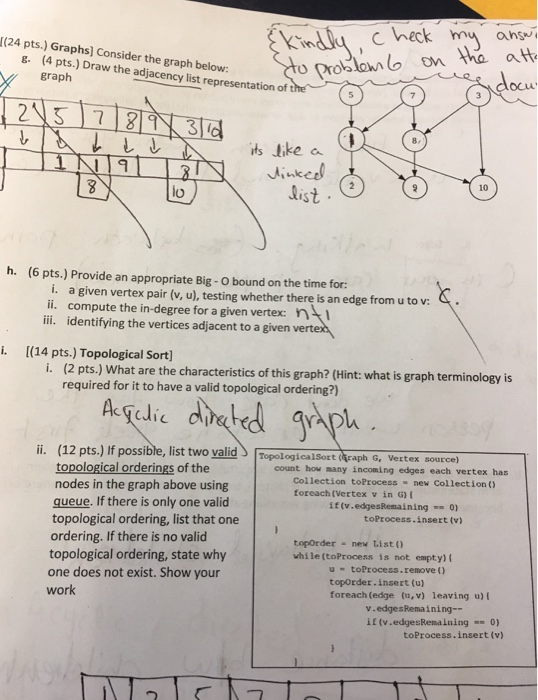 [(24 pts.) Graphs] Consider the graph below:
g. (4 pts.) Draw the adjacency list representation of the
graph
Kindly, Check my answ
to problem 6 on the att
docu
2 5 7 8 9 3 10
1 1 9 8
8 10
its like a
linked
list.
5 7 3
1 8
2 9 10
h. (6 pts.) Provide an appropriate Big - O bound on the time for:
i. a given vertex pair (v, u), testing whether there is an edge from u to v: C.
ii. compute the in-degree for a given vertex: n+1
iii. identifying the vertices adjacent to a given vertex
i. [(14 pts.) Topological Sort]
i. (2 pts.) What are the characteristics of this graph? (Hint: what is graph terminology is
required for it to have a valid topological ordering?)
Acyclic directed graph.
ii. (12 pts.) If possible, list two valid
topological orderings of the
nodes in the graph above using
queue. If there is only one valid
topological ordering, list that one
ordering. If there is no valid
topological ordering, state why
one does not exist. Show your
work
TopologicalSort (Graph G, Vertex source)
count how many incoming edges each vertex has
Collection toProcess = new Collection()
foreach(Vertex v in G){
if(v.edgesRemaining == 0)
toProcess.insert(v)
}
topOrder = new List()
while(toProcess is not empty){
u = toProcess.remove()
topOrder.insert(u)
foreach(edge (u,v) leaving u){
v.edgesRemaining--
if(v.edgesRemaining == 0)
toProcess.insert(v)
}
}